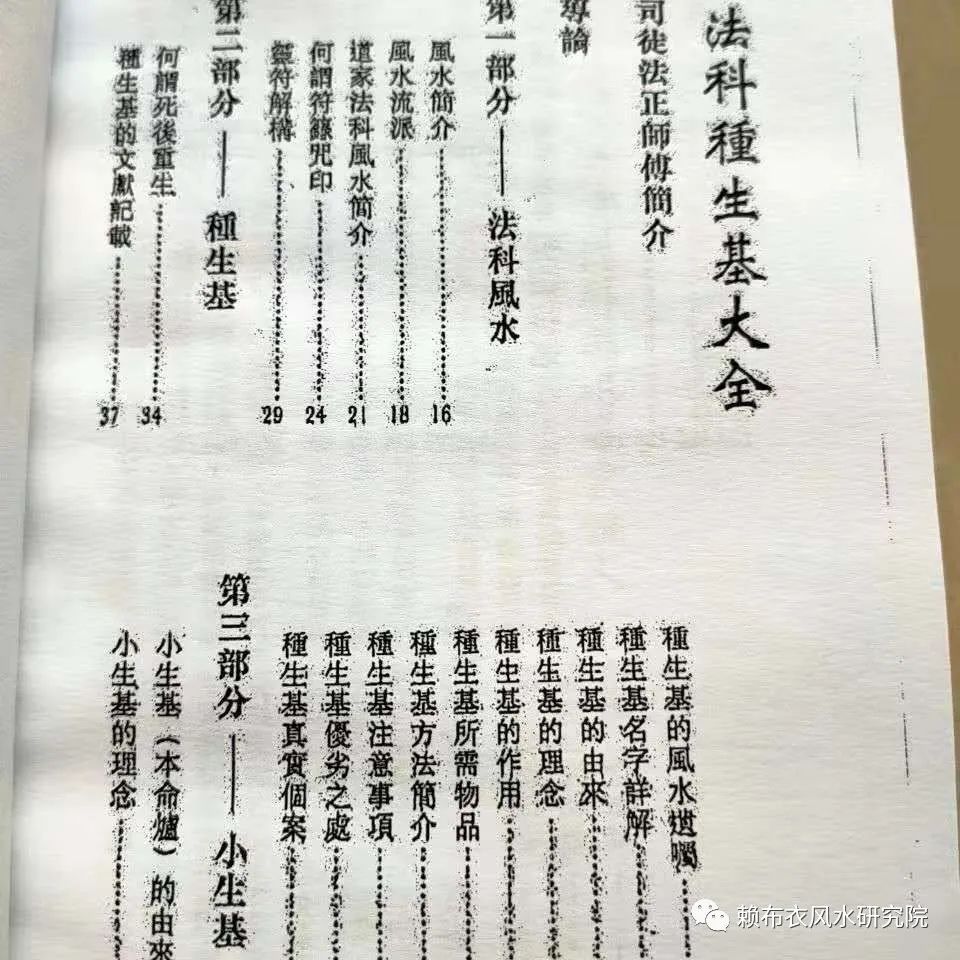 法科種生基大全
司徒法正師傅簡介
導論
第一部分——法科風水
風水簡介 16
風水流派 18
道家法科風水簡介 21
何謂符籙咒印 24
符解構 29
第二部分——種生基
何謂死後重生 34
種生基的文獻記載 37
種生基的風水
種生基名字詳解
種生基的由來
種生基的理念
種生基的作用
種生基所需物品
種生基方法簡介
種生基注意事項
種生基優劣之處
種生基真實個案
第三部分——小生基
小生基（本命爐）的由來
小生基的理念
赖布衣风水研究院